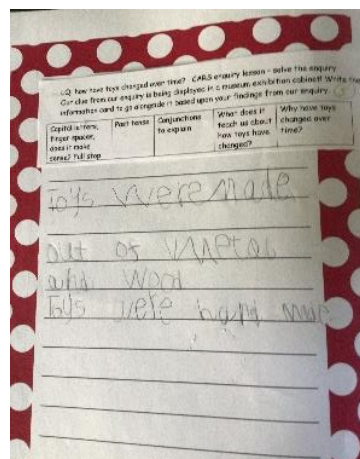 LQ: how have toys changed over time? CARS enquiry lesson - solve the enquiry
Our clue from our enquiry is being displayed in a museum exhibition cabinet! Write the
information card to go alongside it based upon your findings from our enquiry.
Capital letters, finger spaces, does it make sense? Full stop
Past tense
Conjunctions to explain
What does it teach us about how toys have changed?
Why have toys changed over time?
Toys were made
out of metal
and wood
Toys were hand made